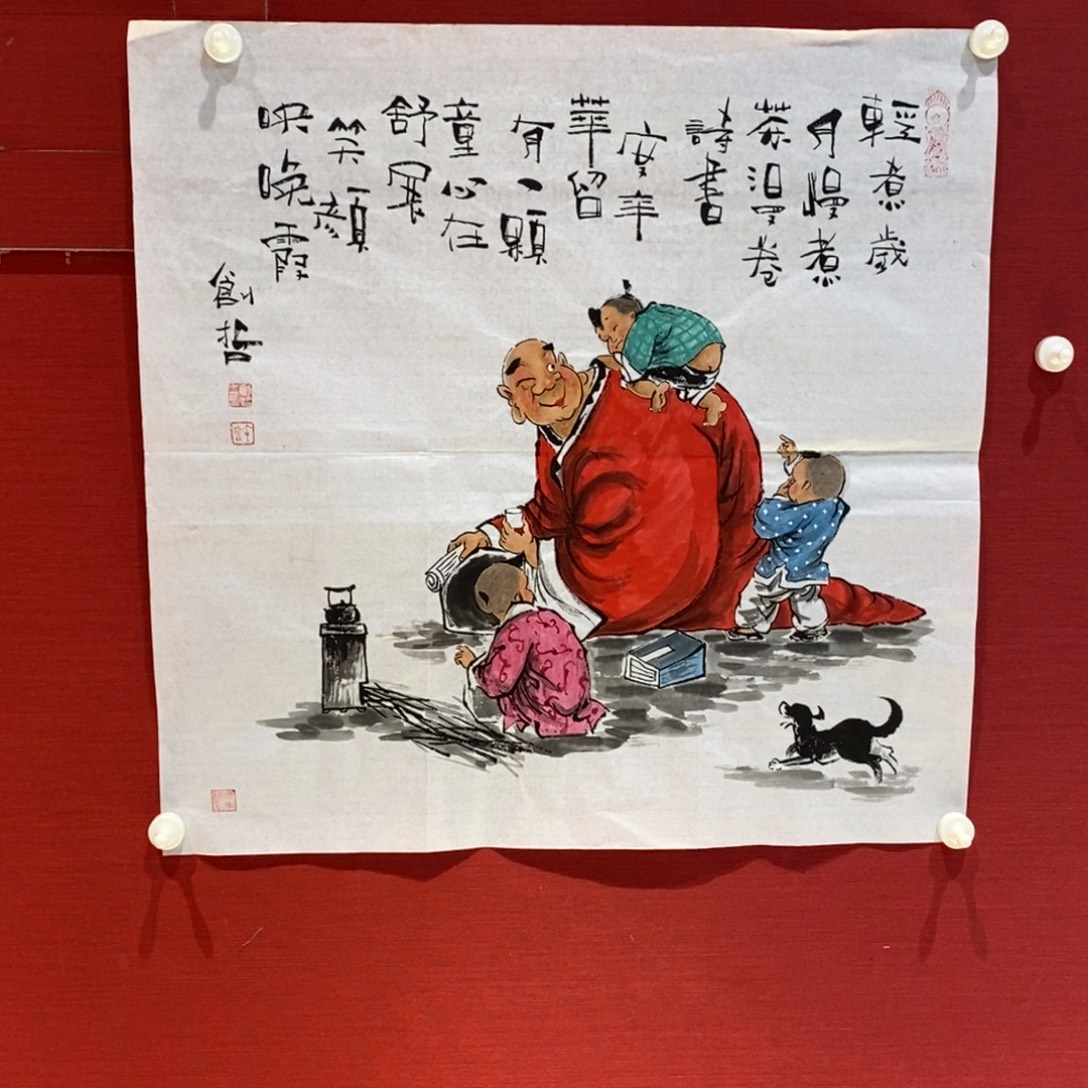 輕煮歲
月慢煮
茶漫卷
詩書
度年
華留
有一顆
童心在
舒展
笑顏
映晚霞
創哲